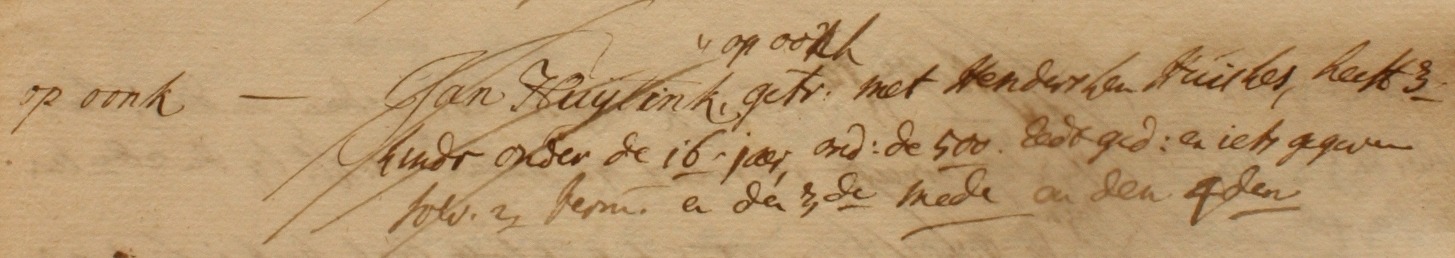 op oonk
op oonk — Jan Huytink, getr: met Hendershen Huishes, heeft 3
kindr onder de 16 jaer, ond: de 500. hedt ged: en iets gegeven
solv. 2 term. en de 3de mede en den 4den